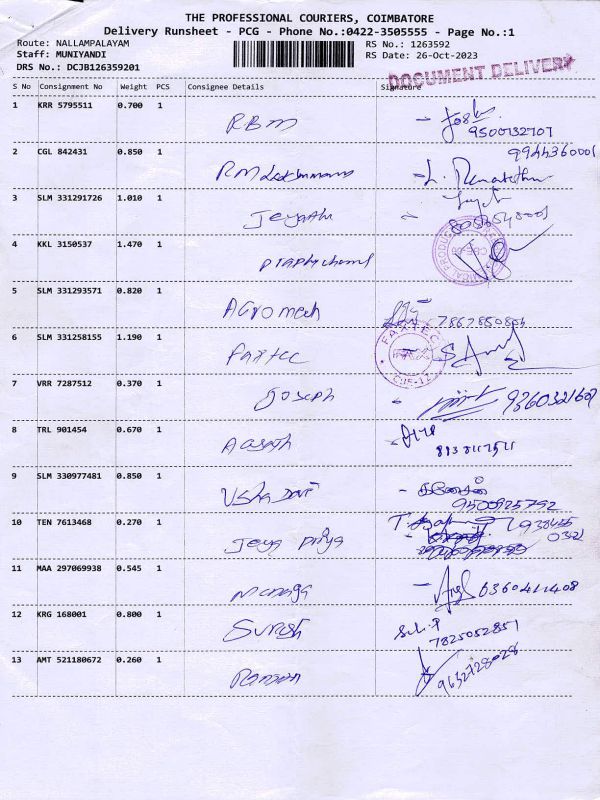 THE PROFESSIONAL COURIERS, COIMBATORE
Delivery Runsheet - PCG - Phone No.:0422-3505555 - Page No.:1
Route: NALLAMPALAYAM
RS No.: 1263592
Staff: MUNIYANDI
RS Date: 26-Oct-2023
DRS No.: DCJB126359201
DOCUMENT DELIVERY
S No Consignment No Weight PCS Consignee Details Signature
1 KRR 5795511 0.700 1
RBM
9500132707
2 CGL 842431 0.850 1
9944360001
RM
3 SLM 331291726 1.010 1
4 KKL 3150537 1.470 1
5 SLM 331293571 0.820 1
Agromech
6 SLM 331258155 1.190 1
FAXTEC
Faxtec
7 VRR 7287512 0.370 1
Joseph
8 TRL 901454 0.670 1
9 SLM 330977481 0.850 1
Usha Davi
9500925792
10 TEN 7613468 0.270 1
Jeya Priya
11 MAA 297069938 0.545 1
6360411408
12 KRG 168001 0.800 1
Suresh
7825052851
13 AMT 521180672 0.260 1
9632728028